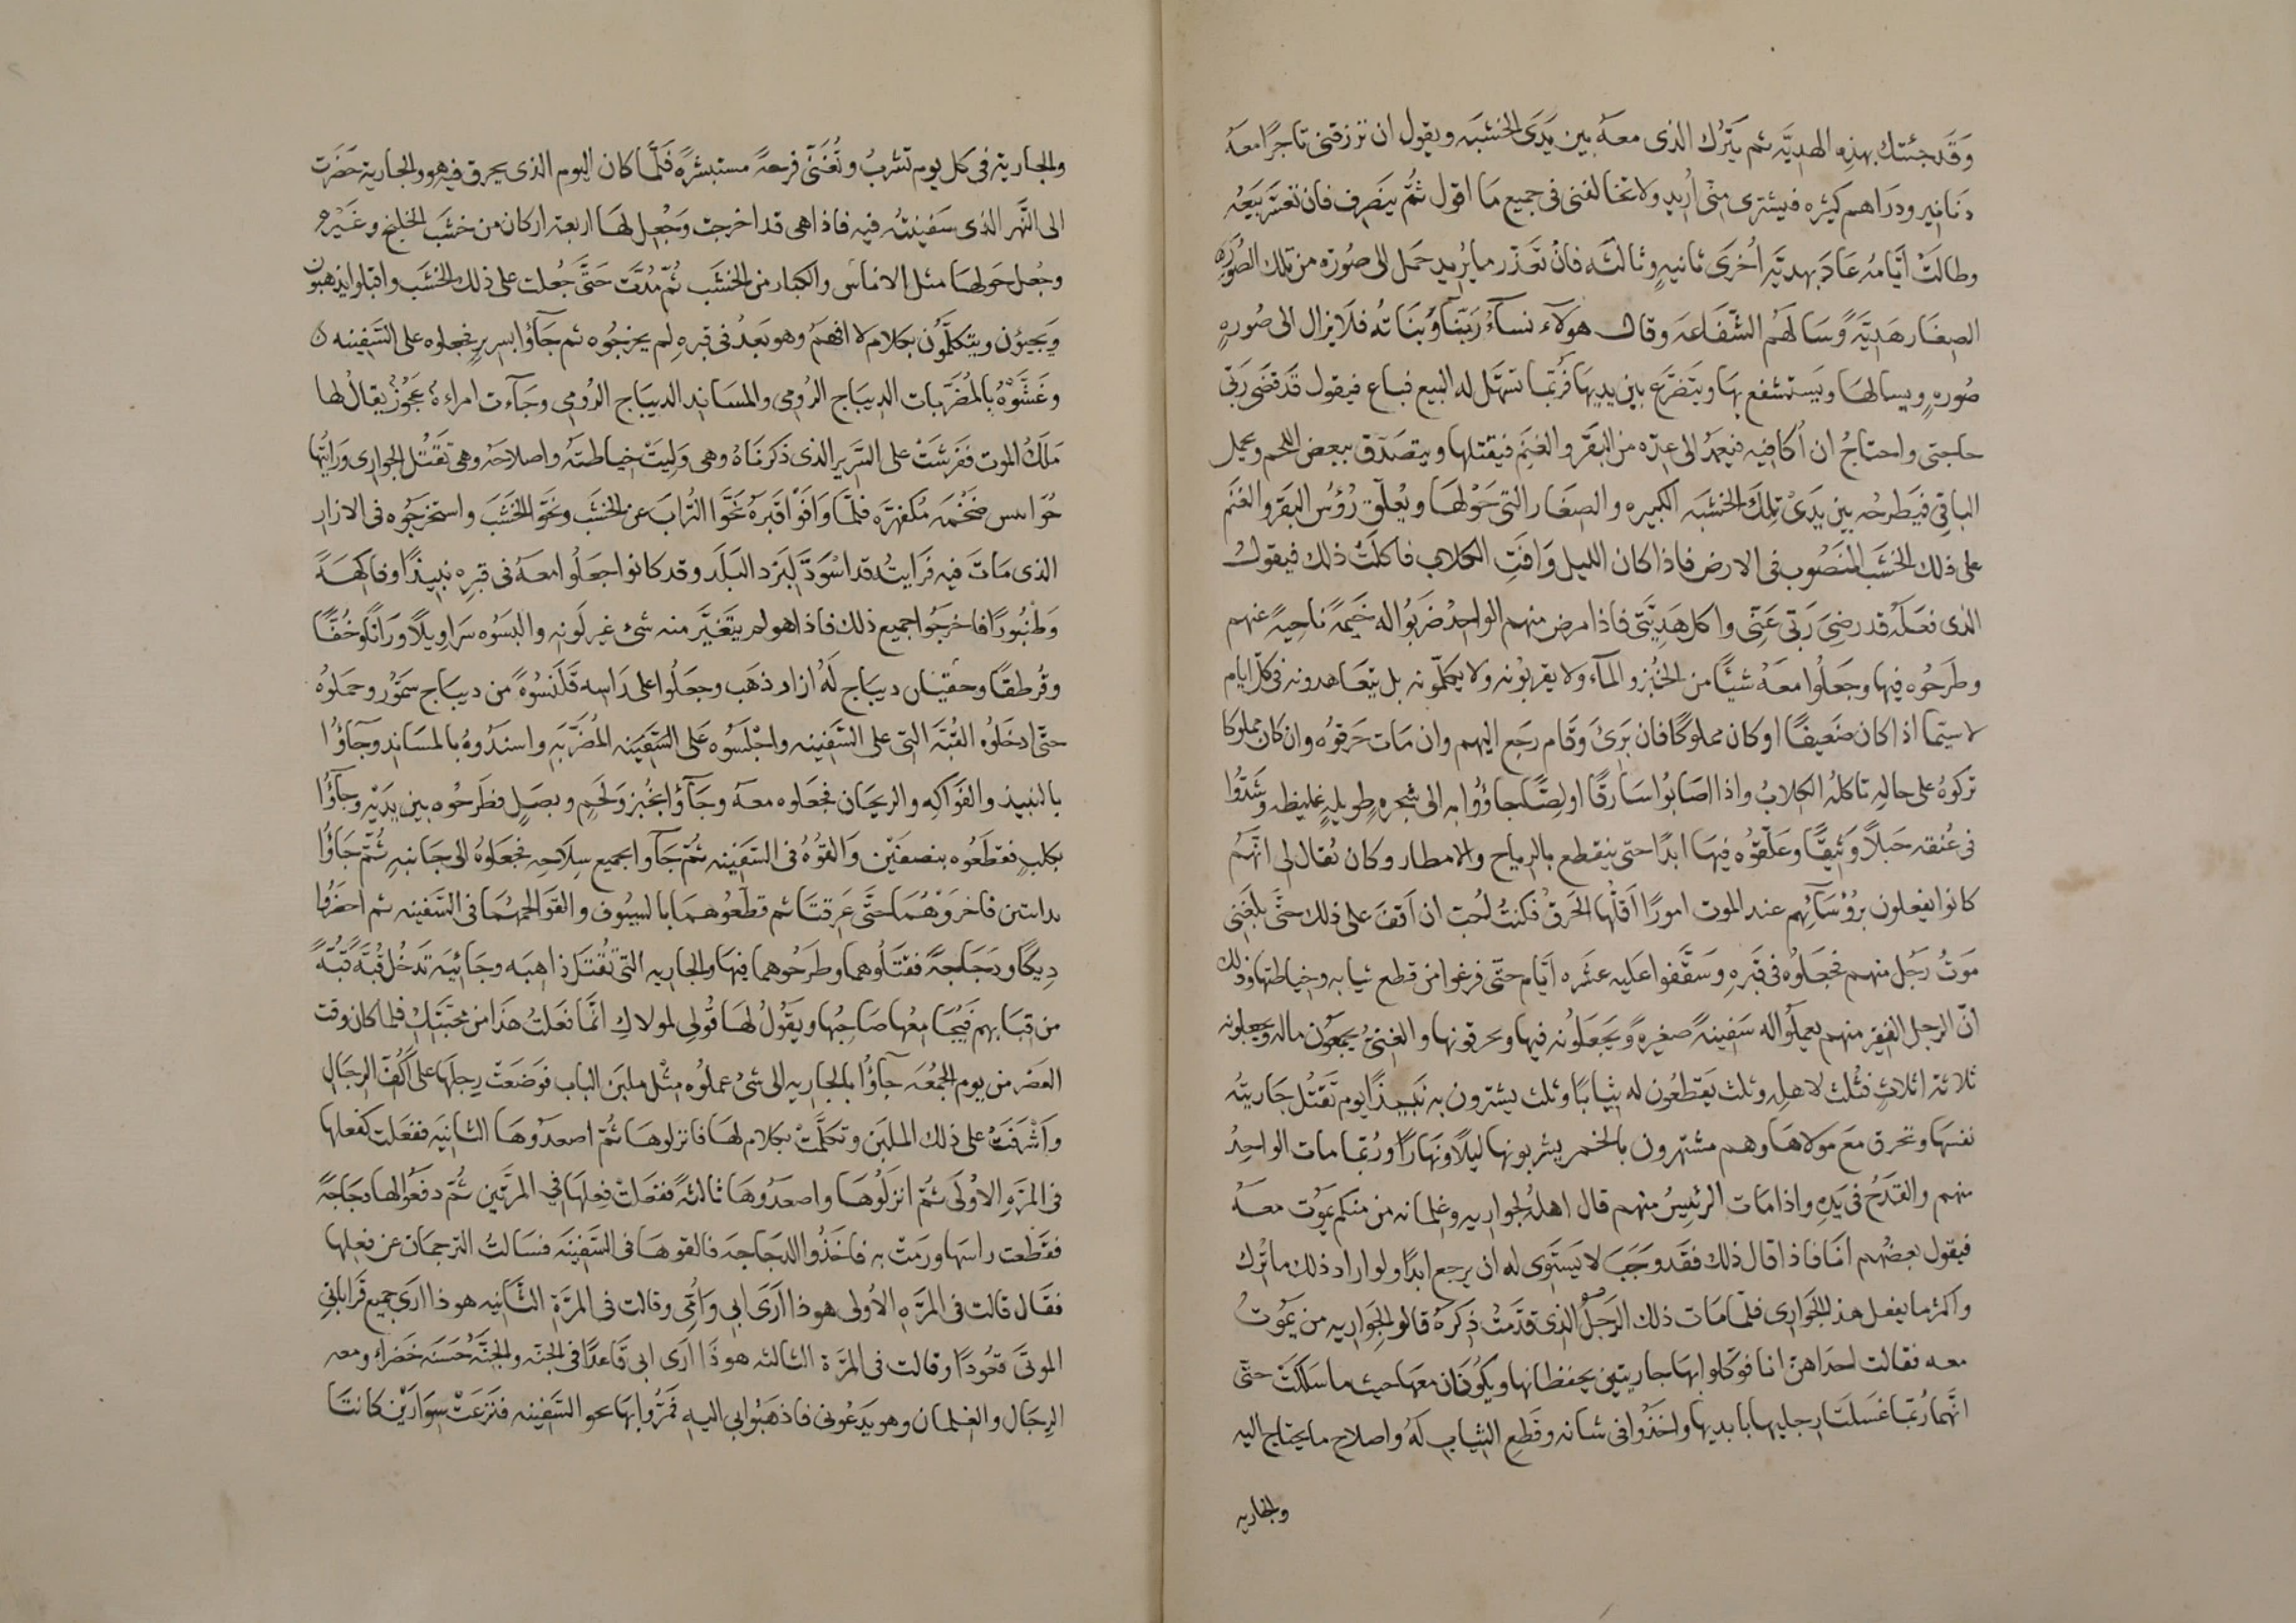 وَقَد جئتك بهذِهِ الهديَّه ثم يَتَرُك الذى معهُ بين يَدَى الخشبَه ويقول ان ترزقنى تاجرًا معهُ
دَنانير ودَراهم كثيره فيشترى منّى اُريد ولا تخالفنى فى جميع مَا اقول ثُمَّ ينصَرِف فان تعسَّر بَيَعُه
وطالَتْ ايَّامُه عَادَ بهديَّهِ اُخرَى ثانيهٍ وثالثَه فانْ تعَذّر ما يُريد حمل الى صُورَه من تلك الصُورِ
الصِغَار هَديَّهً وسَالَهُم الشّفَاعَه وقال هولاء نساءُ رَبّنا وَبَنَاتُه فلا يزال الى صُورهٍ
صُورهٍ ويسالهَا ويَستشفع بهَا ويتَضرَّع بين يديهَا فرُبّما تسَهَّل له البيع فباع فيقول قَد قَضَى رَبّى
حاجتى واحتاجُ ان اُكافيه فيعمدُ الى عِدّه من البَقَر والغَنَم فيقتلها ويتصَدّق ببعض اللحم ويحمل
الباقِى فيَطرحُه بين يَدَىْ تِلكَ الخشبَه الكبيره والصِغَار التى حَوْلهَا ويُعلّق رُؤُس البَقَر والغَنَم
على ذلك الخشَب المَنصُوب فى الارض فاذا كان الليل وَافَتِ الكلاب فاكلَتْ ذلك فيقول
الذى فعَلَهُ قد رضِىَ رَبّى عَنّى واكل هَديَّتى فاذا مرض منهم الواحِدُ ضَربُوا له خَيمةً ناحِيةً عنهم
وطَرَحُوه فيها وجعَلُوا معهُ شيًا من الخبُز والمآء ولا يقربُونه ولا يكلّمونه بل يتعَاهدونه فى كلّ ايام
لا سيّما اذا كان ضَعيفًا او كان مملوكًا فان بَرىَ وَقَام رجَع اليهم وان مَات حَرقوُه وان كان مملوكا
تركوهُ على حالِهِ تاكلُه الكلابُ واذا اصَابُوا سَارقًا او لِصًّا جاؤُوا به الى شجرهٍ طويلهٍ غليظه وشَدّوُا
فى عُنقه حَبلاً وَثيقًا وعَلّقوُه فيهَا ابدًا حتى ينقطع بالرياح والامطار وكان يُقال لى انّهُم
كانوا يفعلون برُؤسَآئِهِم عند الموت امورًا اقَلُّها الحَرقْ فكنتُ اُحبّ ان اَقفَ على ذلك حتَّى بلغَنى
مَوتُ رَجُل منهم فجعَلوُه فى قبَره وسَقّفوا عليه عشَره ايّام حتّى فرغوا من قطع ثيابه وخياطتها وذلك
انّ الرجل الفقير منهم يعملُوا له سَفينهً صغيرهً ويَجعَلُونه فيها ويحرقونها والغنىُّ يجمعُون ماله ويجعلونه
ثلاثه اثلاثٍ فثُلث لاهله وثلث يَقطعُون له ثيابًا وثلث يشترون به نَبيذًا يوم تَقتُل جَاريتُه
نفسَها وتحرق معَ مولاهَا وهم مشتهرون بالخمر يشربونها ليلًا ونهارًا ورُبّما مات الواحِدُ
منهم والقَدَحُ فى يَدِه واذا مَات الرئيسُ منهم قال اهلُه لجواريه وغلمانه من منكم يَموُت معهُ
فيقول بعضُهم انَا فاذا قال ذلك فقَد وَجَبَ لا يَستَوى له ان يرجع ابدًا ولو اراد ذلك ما تُرك
واكثر ما يفعل هذا الجوَارى فلمّا مَات ذلك الرَجلُ الذى قدّمتُ ذِكرَهُ قالوا لجوَاريه من يَمُوتُ
معه فقالت احدَاهنّ انا فوكّلوا بهَا جاريتين يحفظانها ويَكُونَان معهَا حيث ما سَلكَتْ حتّى
انّهما رُبّما غسَلتَا رجليها بايديها واخَذُوا فى شانه وقَطع الثياب لَهُ واصلاح ما يحتاج اليه
والجاريه
والجارية فى كل يوم تشربُ وتُغَنّى فرحةً مستبشرةً فَلَمّا كان اليوم الذى يحرق فيه هو والجارية حَضَرت
الى النّهَر الذى سَفينتُه فيه فاذا هى قد اخرجت وَجُعِل لهَا اربعة اركان من خشَب الخلنج وغَيرِه
وجُعل حَولهَا مثل الاناس والكبار من الخشَب ثُمّ مُدَّت حَتَّى جُعلت على ذلك الخشَب واقبلوا يذهبُون
وَيجيؤُن ويتكلّمُون بكلام لا افهَمُ وهو بَعدُ فى قبره لم يخرجُوه ثم جَآؤا بسريرٍ فجعلوه على السَفينه
وغَشَّوْهُ بالمُضَرَّبات الديبَاج الرُومى والمسَاند الديبَاج الرُومى وجَآءت امراءة عَجُوزٌ يقال لها
مَلَكُ الموت ففَرشَتْ على السَرير الذى ذكرنَاهُ وهى وَليَتْ خياطتَهُ واصلاحَهُ وهى تَقتُل الجوارى ورَايتُها
حوانبيره ضخمه مُكفهرَّه فلمّا وَافَوْا قَبرَهُ نحَّوا التُرابَ عن الخشَب ونَحّوا الخَشَبَ واستخرجوُه فى الازار
الذى مَات فيه فَرايتُه قد اسْوَدَّ لبَرد البَلَد وقد كانوا جعَلُوا معَهُ فى قبرِه نبيذًا وفاكهَةً
وَطُنبُورًا فاخرجُوا جميع ذلك فاذا هو لم يتَغيَّر منه شىٌ غير لَونه والبسَوُه سَراويلًا ورَانًا وخُفًّا
وقُرطقًا وخفتان ديبَاج لهُ ازرار ذهَب وجعَلُوا على رَاسه قَلَنسُوهً من ديبَاج سَمّوُر وحمَلوُه
حتّى ادخَلوُه القُبّهَ التى على السَّفينه واجْلَسُوه عَلى السَّفينه المُضَرَّبهِ واسندوُهُ بالمسَاند وجآؤُا
بالنبيذ والفوَاكِه والريحَان فجعَلوه معهُ وجَآؤا بخُبز وَلَحمٍ وبصَلٍ فطَرحُوه بين يدَيْه وجآؤُا
بكلبٍ فقطَعُوه بنصفَيْن وَالقَوُه فى السَّفينه ثُمّ جَآوا بجميع سِلاحهِ فجعَلوُهُ الى جَانبهِ ثُمّ جَاؤُا
بدابتين فاجروَهُمَا حتَّى عَرقتَا ثم قطَّعوُهمَا بالسيُوف والقَوا لحمهُمَا فى السَّفينه ثم احضَرُوا
دِيكًا ودجَاجةً فقتَلُوهما وطرَحُوهما فيهَا والجاريه التى تُقتَل ذاهبَه وجَائيَه تَدخُل قُبّةً قُبّةً
من قبَابهم فيُجَامعُها صَاحِبُها ويَقوُلُ لهَا قُولى لمولاكِ انّمَا فعَلتُ هَذَا من محبَّتِكَ فلمّا كان وقت
العَصر من يوم الجمُعَه جآؤُا بالجاريه الى شىُ عملوُه مثل ملبن الباب فوَضَعَتْ رِجلَهَا على اَكُفّ الرجَال
وَاَشرَفَتْ على ذلك الملبَن وتكلّمَتْ بكلام لهَا فانزلوهَا ثُمّ اصعدوُهَا الثانيَه ففعَلت كفعلها
فى المَرّهِ الاُولَى ثُمّ انزلُوهَا واصعَدُوهَا ثالثةً ففعَلَتْ فعلهَا فى المرَّتين ثُمّ دفعَوا لها دجَاجَةً
فقَطّعت راسَها ورَمَتْ به فاخَذُوا الدجَاجَه فالقوهَا فى السَّفينَه فسَالتُ الترجمَان عن فعلِها
فقَال قالت فى المرَّهِ الاُولى هو ذا ارَى ابى وَامّى وقالت فى المرَّةِ الثَّانيه هو ذا ارَى جميع قَرابَاتى
الموتَى قعُودًا وقالت فى المَرّة الثالثه هو ذَا ارَى ابى قَاعدًا فى الجنّه والجنّهُ حَسَنَه خَضراء ومعه
الرجَال والغلمان وهو يَدعُونى فاذهَبُوا بى اليه فمَرُّوا بهَا نحو السَّفينه فنَزعَتْ سِوَارَيْن كانتَا